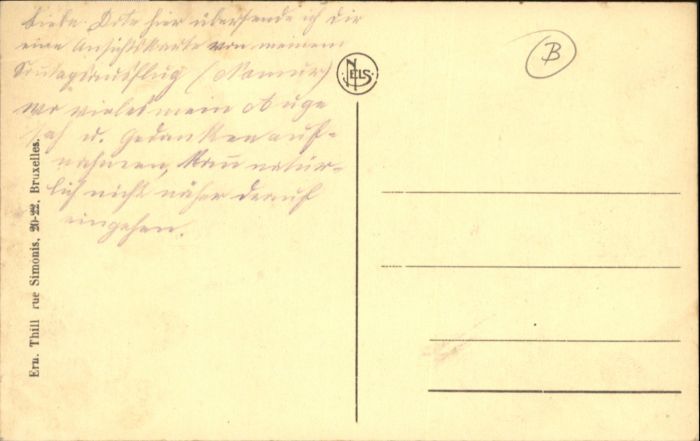 Liebe Dote hier übersende ich dir
eine Ansichtskarte von meinem
Sonntagsausflug (Namur)
wo vieles mein
sah u. Gedanken auf-
nahmen, kann natür-
lich nicht näher darauf
eingehen.
NELS
B
Ern. Thill rue Simonis, 20-22, Bruxelles.